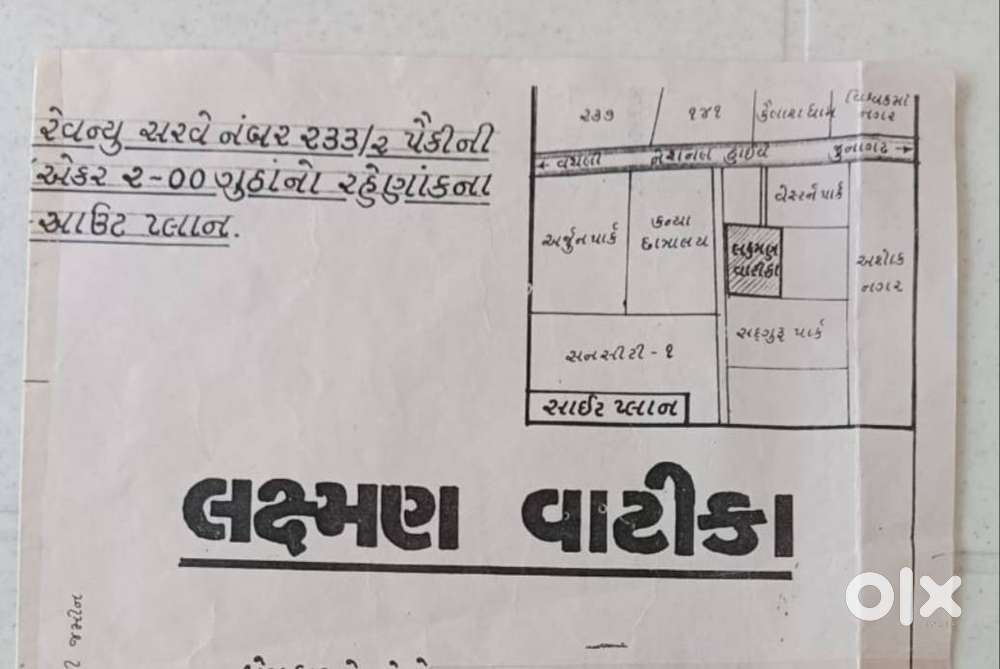 રેવન્યુ સરવે નંબર ૨૩૩/૨ પૈકીની
એકર ૨-૦૦ ગુઠાંનો રહેણાંકના
આઉટ પ્લાન.
૨૩૭
૧૪૧
કૈલાશ ધામ
નગર
← વંથલી નેશનલ હાઈવે જુનાગઢ →
વેસ્ટર્ન પાર્ક
અર્જુન પાર્ક
કન્યા
છાત્રાલય
લક્ષ્મણ
વાટીકા
અશોક
નગર
સદ્ગુરૂ પાર્ક
સનસીટી - ૧
સાઈટ પ્લાન
લક્ષ્મણ વાટીકા
જમીન
olx